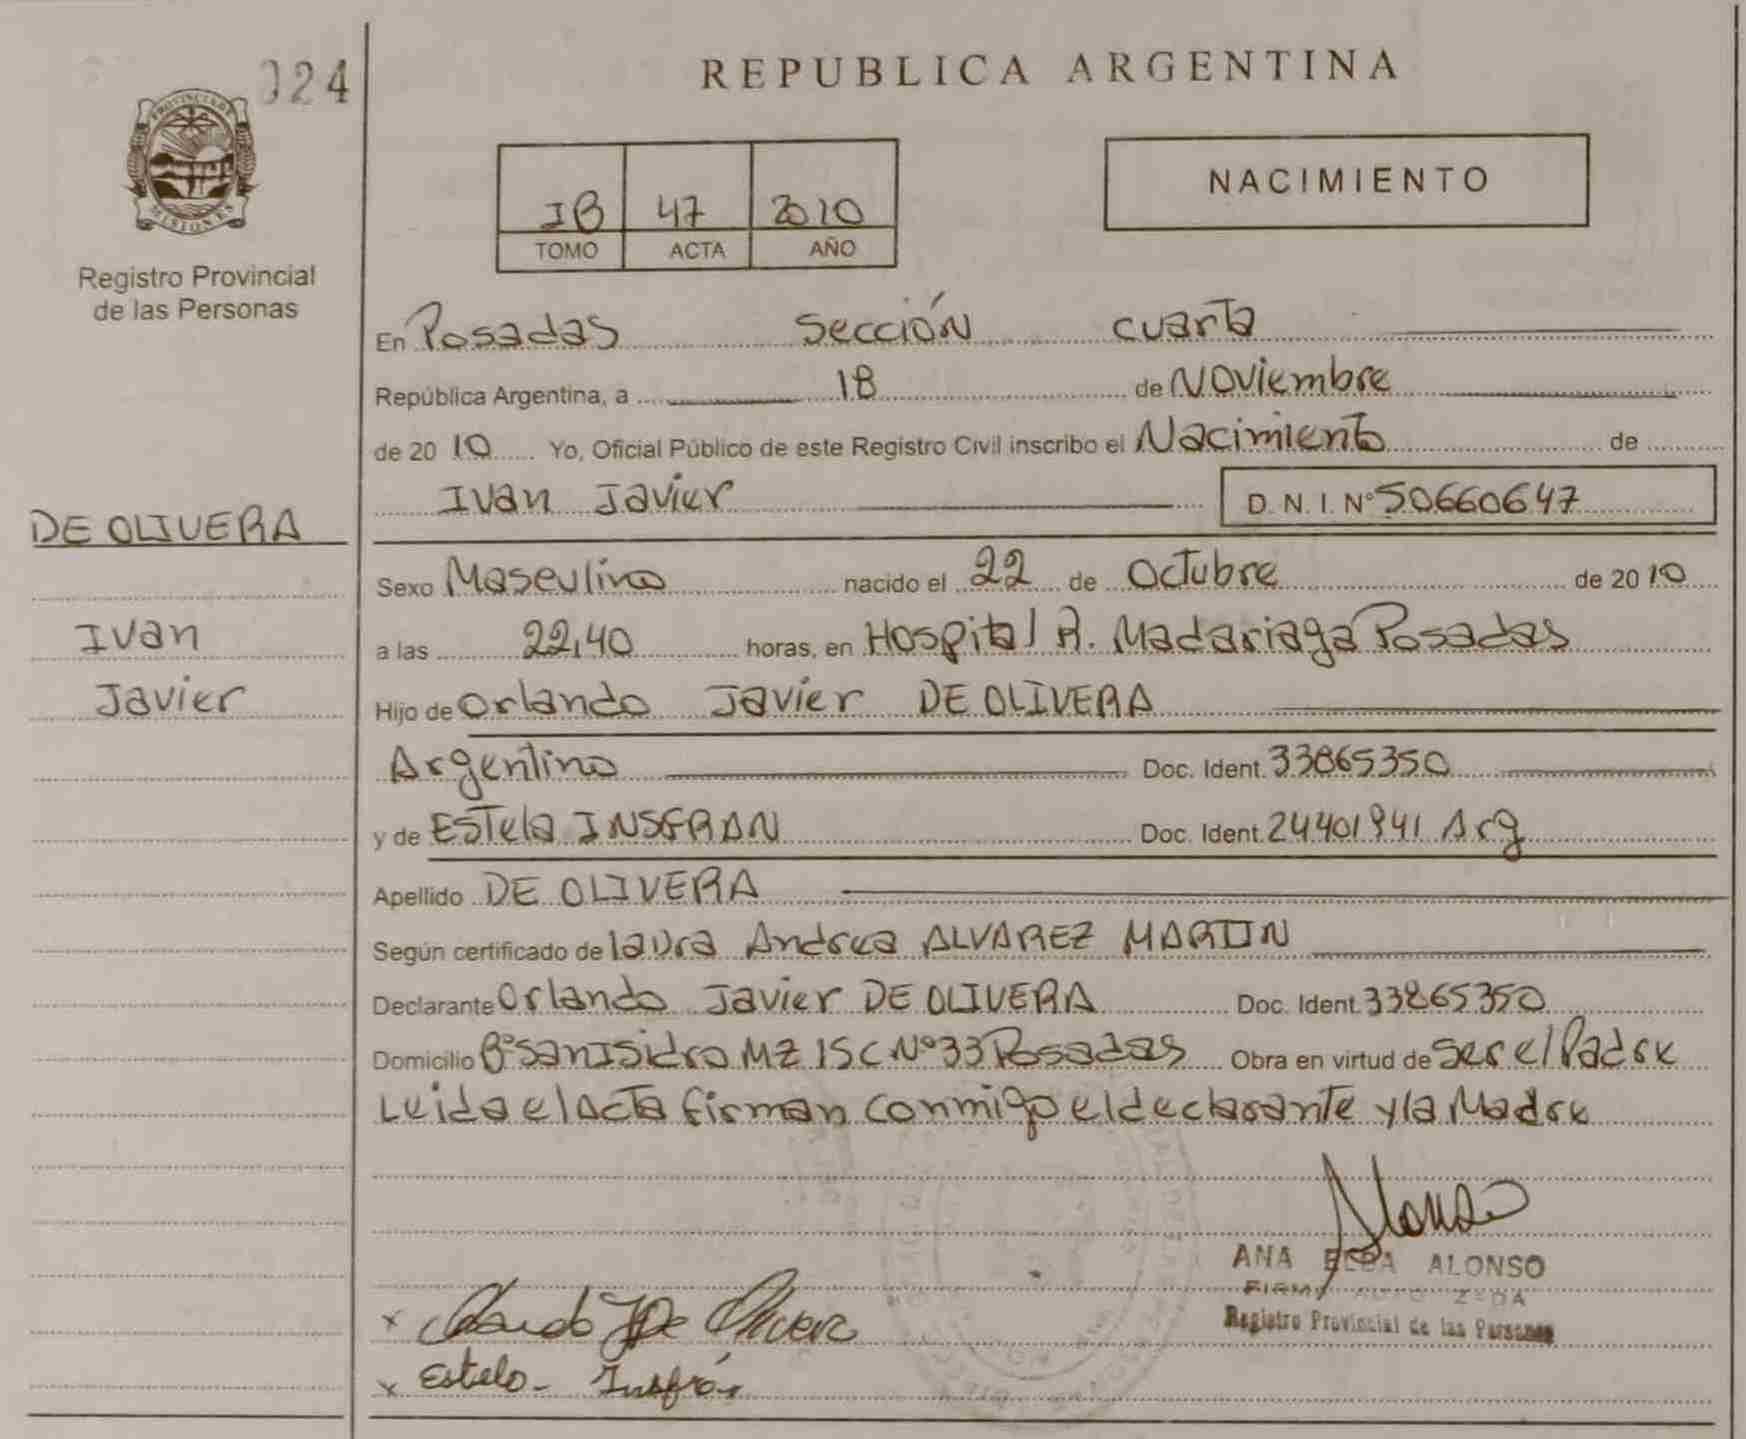 024
REPUBLICA ARGENTINA
PROVINCIA DE
MISIONES
Registro Provincial
de las Personas
NACIMIENTO
IB 47 2010
TOMO ACTA AÑO
En Posadas Sección cuarta
República Argentina, a 18 de Noviembre
de 2010 Yo, Oficial Público de este Registro Civil inscribo el Nacimiento de
Ivan Javier D. N. I. Nº 50660647
DE OLIVERA
Ivan
Javier
Sexo Masculino nacido el 22 de Octubre de 2010
a las 22,40 horas, en Hospital R. Madariaga Posadas
Hijo de Orlando Javier DE OLIVERA
Argentino Doc. Ident. 33865350
y de Estela INSFRAN Doc. Ident. 24401941 Arg
Apellido DE OLIVERA
Según certificado de Laura Andrea ALVAREZ MARTIN
Declarante Orlando Javier DE OLIVERA Doc. Ident. 33865350
Domicilio Bº San Isidro MZ 15 C Nº 33 Posadas Obra en virtud de ser el Padre
Leida el Acta firman conmigo el declarante y la Madre
Alonso
ANA ELBA ALONSO
Registro Provincial de las Personas
x Orlando J De Olivera
x Estela - Insfrán